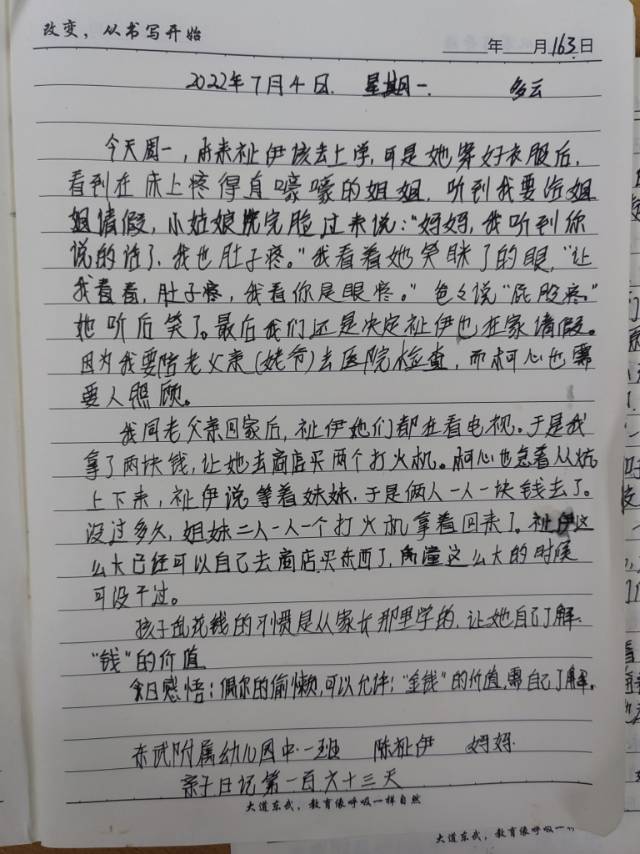 改变，从书写开始
年 月163日
2022年7月4日. 星期一. 多云
今天周一，本来祉伊该去上学，可是她穿好衣服后，
看到在床上疼得直嚎嚎的姐姐，听到我要给姐
姐请假，小姑娘洗完脸过来说："妈妈，我听到你
说的话了，我也肚子疼。"我看着她笑眯了的眼，"让
我看看，肚子疼，我看你是眼疼。"爸爸说"屁股疼"
她听后笑了。最后我们还是决定祉伊也在家请假。
因为我要陪老父亲(姥爷)去医院检查，而柯心也需
要人照顾。
我同老父亲回家后，祉伊她们都在看电视。于是我
拿了两块钱，让她去商店买两个打火机。柯心也急着从炕
上下来，祉伊说等着妹妹，于是俩人一人一块钱去了。
没过多久，姐妹二人一人一个打火机拿着回来了。祉伊这
么大已经可以自己去商店买东西了，雨潼这么大的时候
可没干过。
孩子乱花钱的习惯是从家长那里学的，让她自己了解
"钱"的价值
今日感悟：偶尔的偷懒，可以允许；"金钱"的价值，需自己了解。
东武附属幼儿园中一班 陈祉伊 妈妈
亲子日记第一百六十三天
大道东武，教育像呼吸一样自然
大道东武，教育像呼吸一样